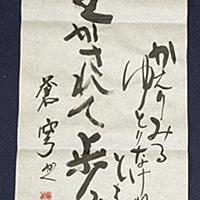 かえりみる
ゆとりなけれ
かされて歩
蒼穹